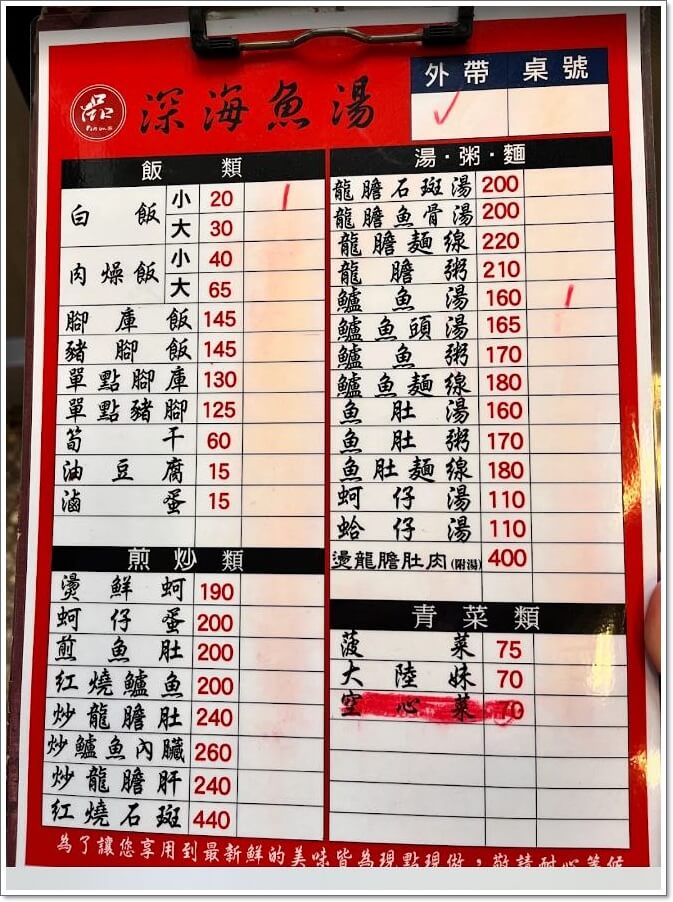 品
深海魚湯
外帶 桌號
✓
飯類
白飯 小 20 1
大 30
肉燥飯 小 40
大 65
腳庫飯 145
豬腳飯 145
單點腳庫 130
單點豬腳 125
筍干 60
油豆腐 15
滷蛋 15
煎炒類
燙鮮蚵 190
蚵仔蛋 200
煎魚肚 200
紅燒鱸魚 200
炒龍膽肚 240
炒鱸魚內臟 260
炒龍膽肝 240
紅燒石斑 440
湯·粥·麵
龍膽石斑湯 200
龍膽魚骨湯 200
龍膽麵線 220
龍膽粥 210
鱸魚湯 160 1
鱸魚頭湯 165
鱸魚粥 170
鱸魚麵線 180
魚肚湯 160
魚肚粥 170
魚肚麵線 180
蚵仔湯 110
蛤仔湯 110
燙龍膽肚肉(附湯) 400
青菜類
菠菜 75
大陸妹 70
空心菜 70
為了讓您享用到最新鮮的美味皆為現點現做，敬請耐心等候